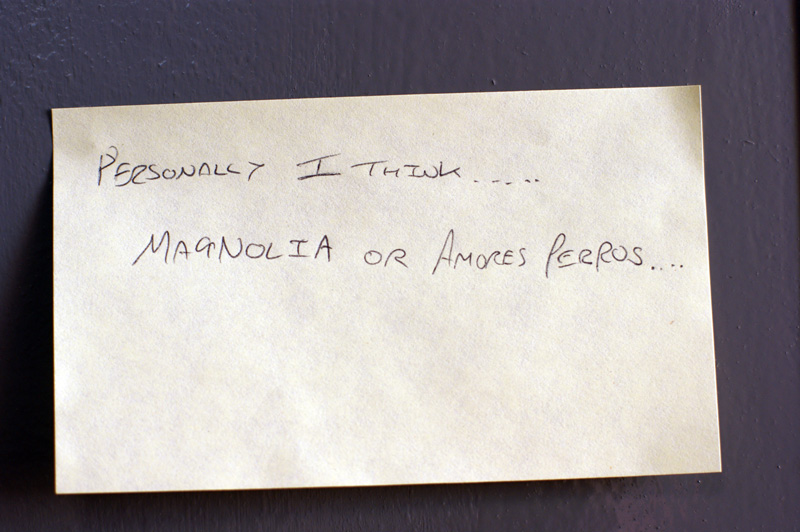 PERSONALLY I THINK.....
MAGNOLIA OR AMORES PERROS....